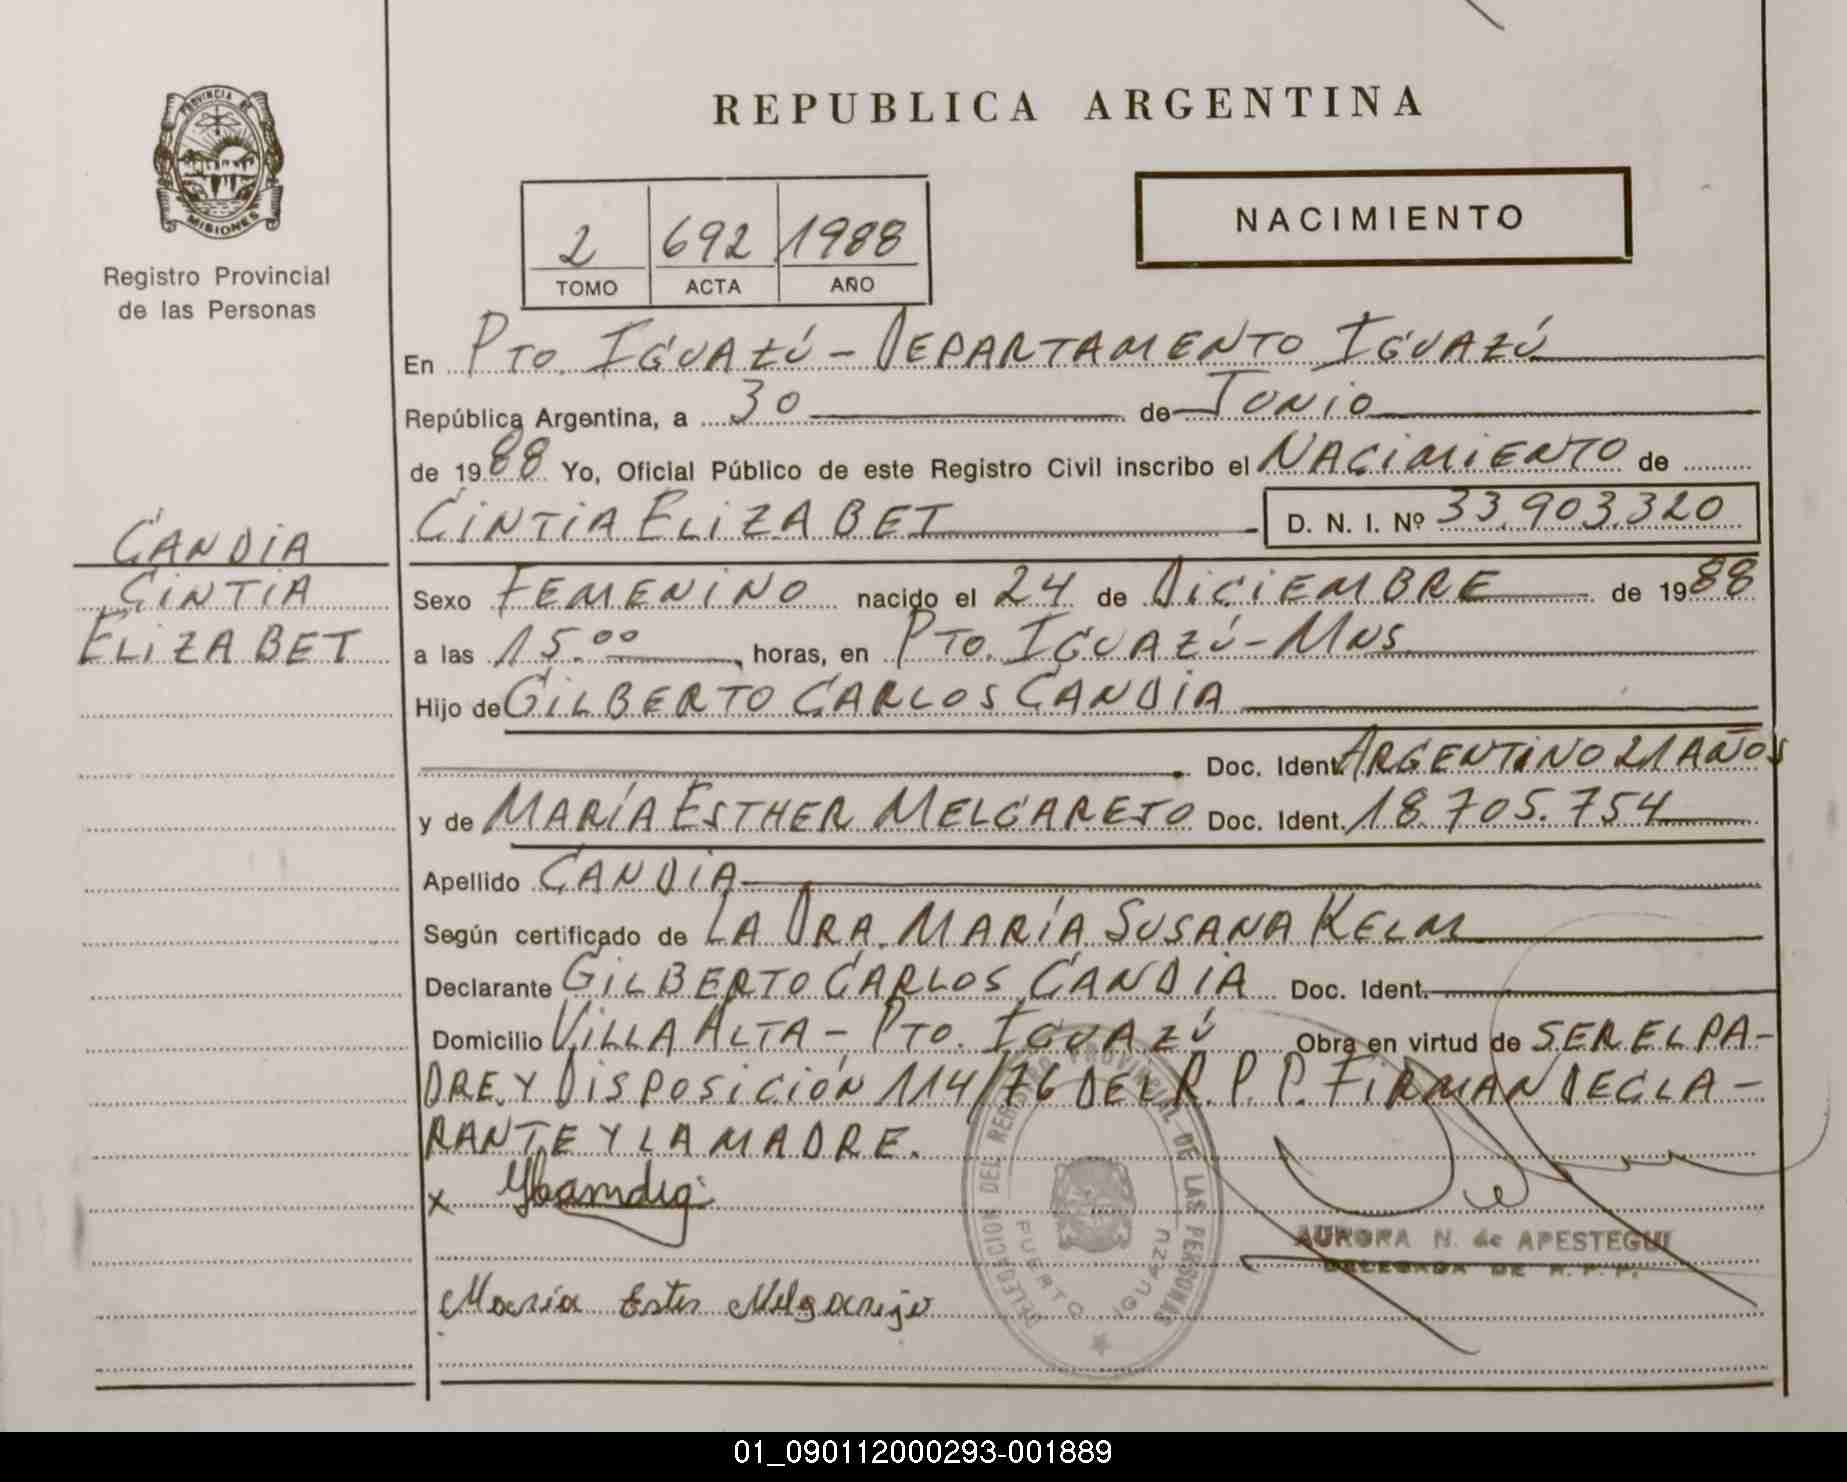 PROVINCIA DE
MISIONES
Registro Provincial
de las Personas
REPUBLICA ARGENTINA
2 692 1988
TOMO ACTA AÑO
NACIMIENTO
En PTO. IGUAZÚ - DEPARTAMENTO IGUAZÚ
República Argentina, a 30 de JUNIO
de 1988 Yo, Oficial Público de este Registro Civil inscribo el NACIMIENTO de
CINTIA ELIZABET D. N. I. Nº 33.903.320
CANDIA
CINTIA
ELIZABET
Sexo FEMENINO nacido el 24 de DICIEMBRE de 1988
a las 15.00 horas, en PTO. IGUAZÚ - MNS.
Hijo de GILBERTO CARLOS CANDIA
Doc. Ident. ARGENTINO 21 AÑOS
y de MARÍA ESTHER MELGAREJO Doc. Ident. 18.705.754
Apellido CANDIA
Según certificado de LA DRA. MARÍA SUSANA KELM
Declarante GILBERTO CARLOS CANDIA Doc. Ident.
Domicilio VILLA ALTA - PTO. IGUAZÚ Obra en virtud de SER EL PA-
DRE Y DISPOSICIÓN 114/76 DEL R. P. P. FIRMAN DECLA-
RANTE Y LA MADRE.
x
María Ester Melgarejo
DELEGACION DEL REGISTRO PROVINCIAL DE LAS PERSONAS
PUERTO IGUAZU
AURORA N. de APESTEGUI
DELEGADA DE R. P. P.
01_090112000293-001889